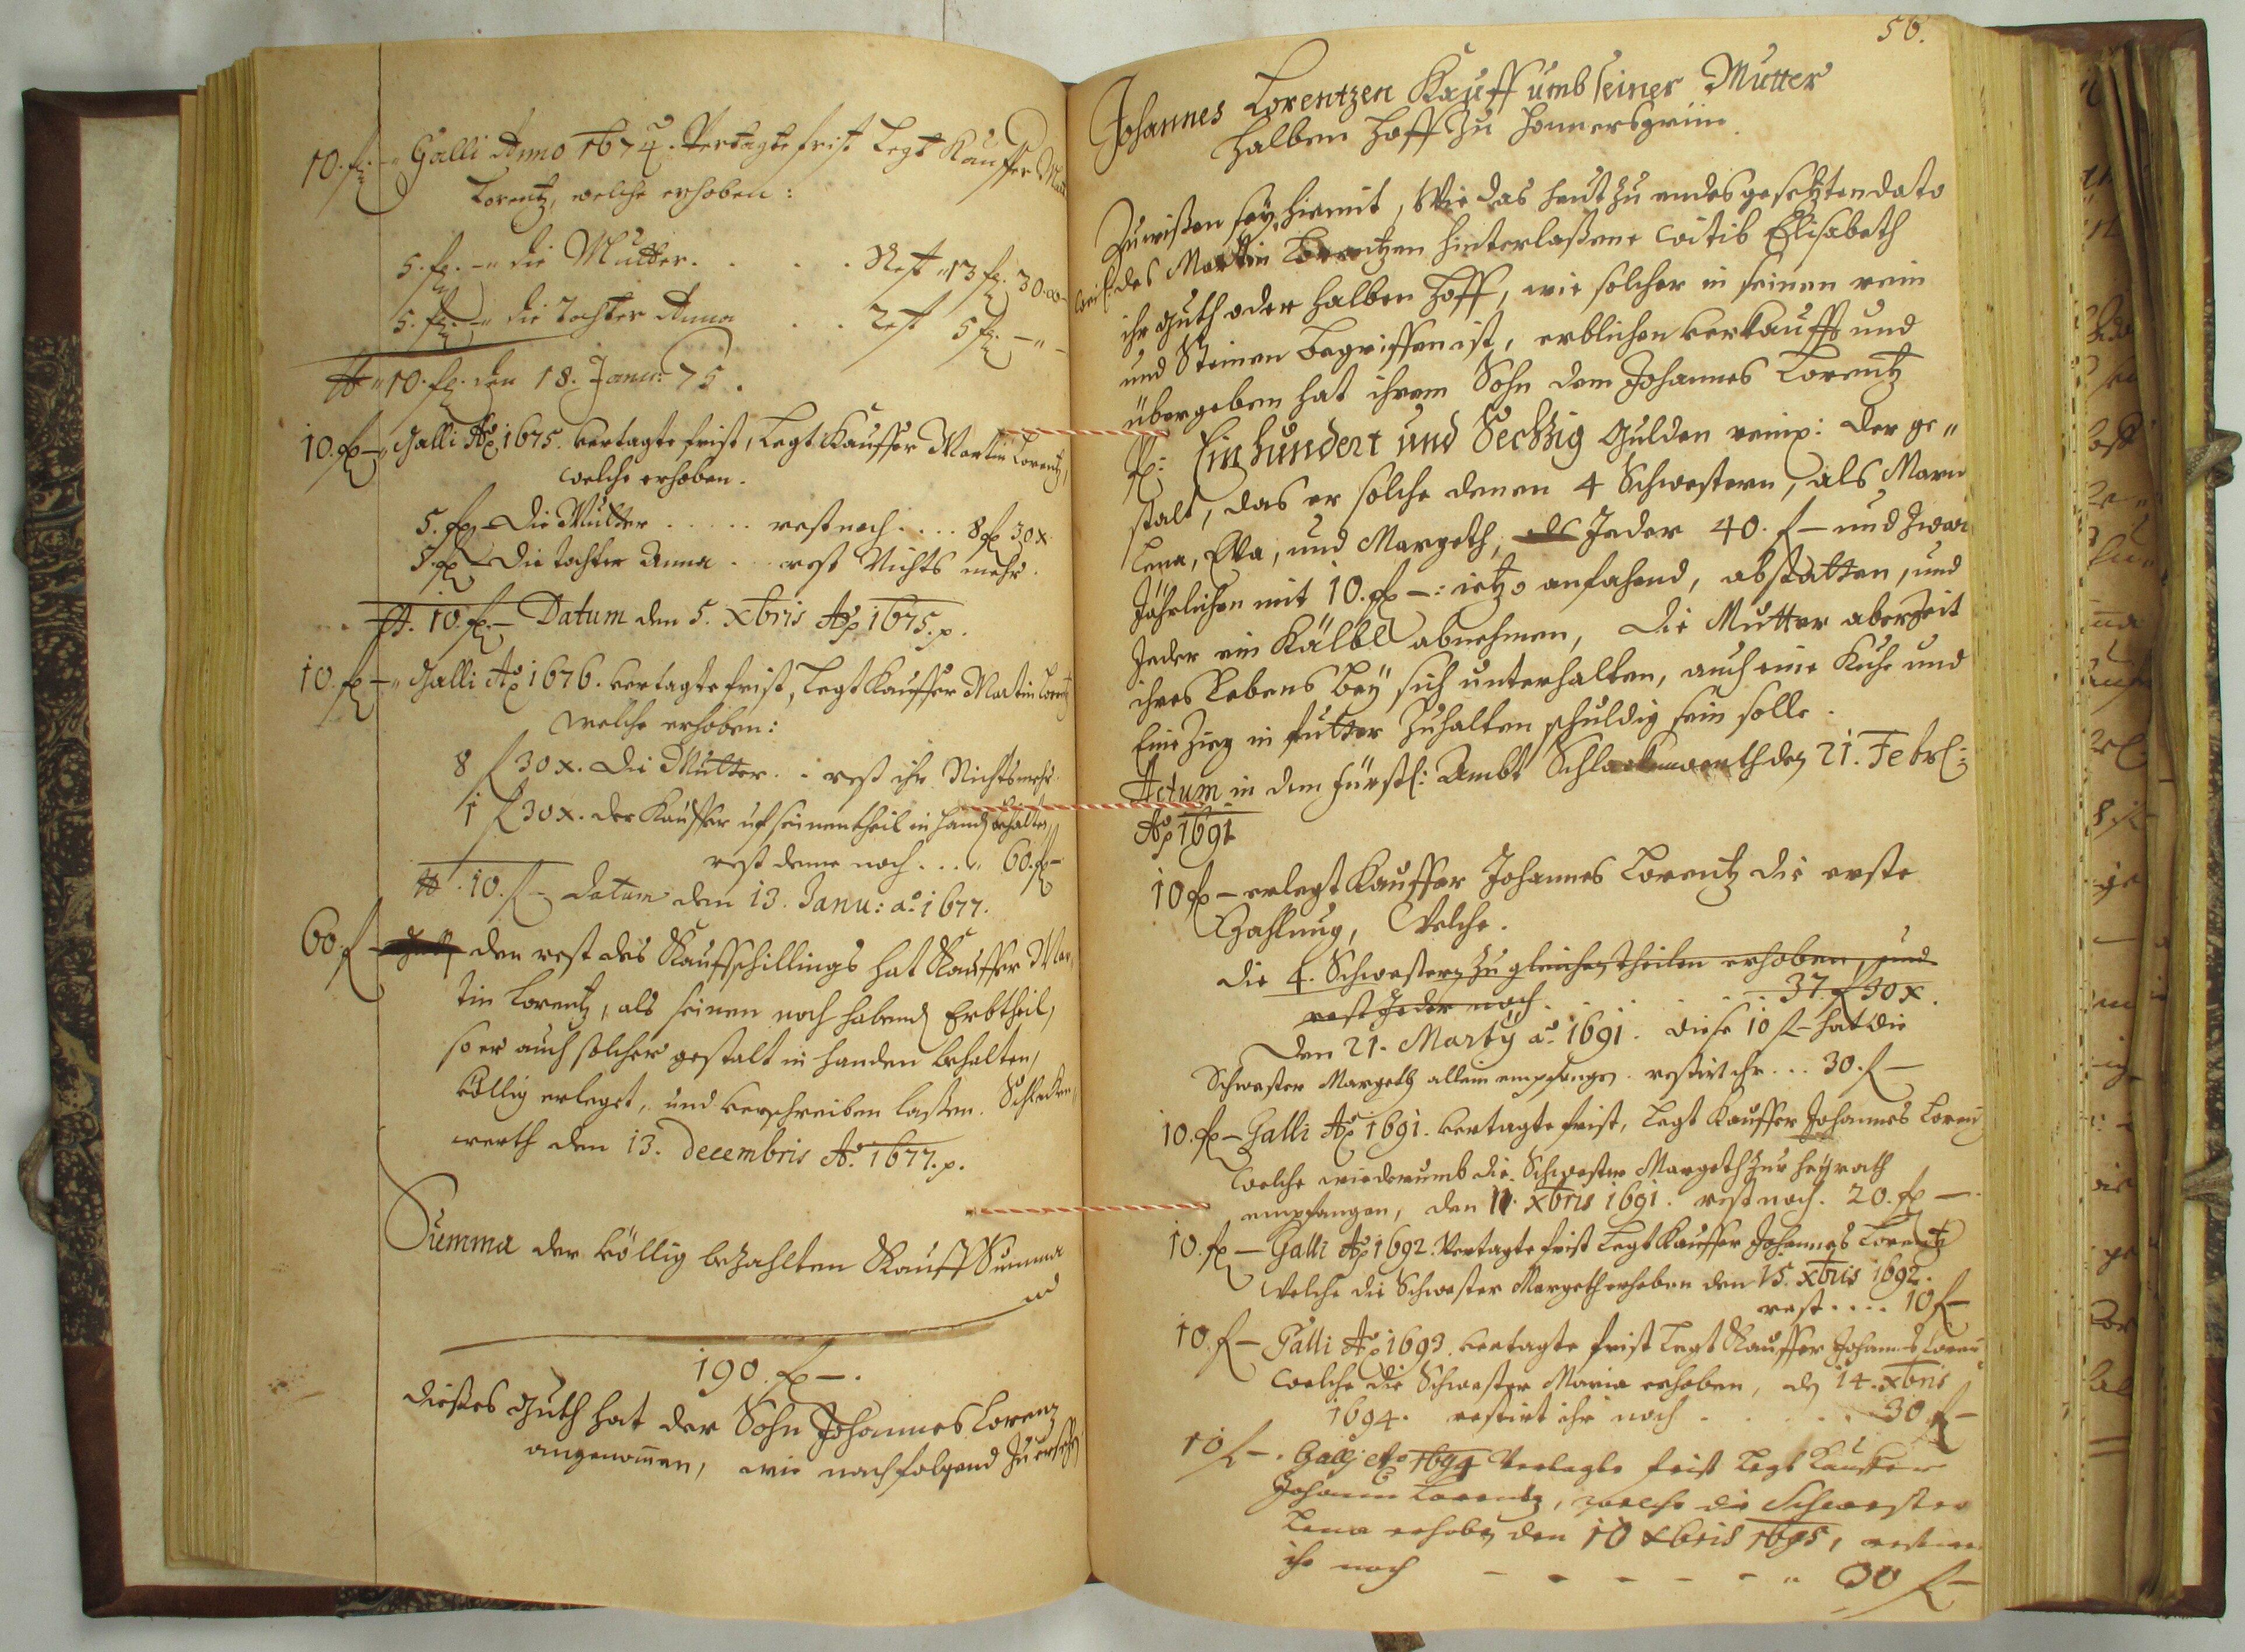 10. fl. – Galli Anno 1674. Vertagte frist Legt Kauffer
Lorentz, welche erhoben:
5. fl. – die Mutter. . . . . Rest 13 fl. 30.
5. fl. – die Tochter Anna . . . Rest 5 fl. –
10. fl. den 18. Janu: 75.
10. fl – Galli Aō 1675. vertagte frist, Legt Kauffer Martin Lorentz,
welche erhoben.
5. fl – Die Mutter . . . . . rest noch . . . . 8 fl 30 x
5. fl – Die tochter Anna . . . rest Nichts mehr.
10. fl. – Datum den 5. Xbris Aō 1675. p.
10. fl – Galli Aō 1676. vertagte frist, Legt Kauffer Martin Lorentz
welche erhoben:
8 fl 30 x. die Mutter . . rest ihr Nichts mehr.
1 fl 30 x. der Kauffer uf seinen theil in handen behalten,
rest deme noch . . . . 60. fl –
10. fl – Datum den 13. Janu: aō 1677.
60. fl – den rest des Kaufschillings hat Kauffer Mar-
tin Lorentz, als seinen noch habend Erbtheil,
so er auch solcher gestalt in handen behalten,
völlig erleget, und verschreiben laßen. Schlacken-
werth den 13. Decembris Aō 1677. p.
Summa der völlig bezahlten Kauff Summa
190. fl –.
dießes Guth hat der Sohn Johannes Lorenz
angenommen, wie nachfolgend zu ersehen
56.
Johannes Lorentzen Kauff umb seiner Mutter
halben Hoff zu Honnersgrün.
Zu wißen sey hiemit, Wie das heut zu endes gesetzten dato
des Martin Lorentzen hinterlaßene witib Elisabeth
ihr Guth oder halben Hoff, wie solcher in seinen rein
und Steinen begriffen ist, erblichen verkaufft und
übergeben hat ihrem Sohn dem Johannes Lorentz
p: Ein hundert und Sechzig Gulden reinp: der ge-
stalt, das er solche denen 4 Schwestern, als Maria
Lena, Eva, und Margeth, als Jeder 40. f – und zwar
Jährlichen mit 10. fl –: ietzo anfahend, abstatten, und
Jeder ein Kälbl abnehmen, die Mutter aber Zeit
ihres Lebens bey sich unterhalten, auch eine Kuhe und
Eine Zieg in futter zuhalten schuldig sein solle.
Actum in dem Fürstl: Ambt Schlackenwerth den 21. Febr:
Aō 1691
10 fl – erlegt Kauffer Johannes Lorentz die erste
Zahlung, Welche.
die 4. Schwestern zu gleichen theilen erhoben, und
rest Jeder noch . . . . . 37 fl 30 x.
den 21. Martÿ aō 1691. diese 10 fl – hat die
Schwester Margeth allein empfangen. restirt ihr . . . 30. fl –
10. fl – Galli Aō 1691. vertagte frist, Legt Kauffer Johannes Lorenz
welche wiederumb die Schwester Margeth zur heyrath
empfangen, den 11. Xbris 1691. rest noch. 20. fl –.
10. fl – Galli Aō 1692. Vertagte frist Legt Kauffer Johannes Lorentz
Welche die Schwester Margeth erhoben den 15. Xbris 1692.
rest . . . . 10 fl –
10. fl – Galli Aō 1693. vertagte frist Legt Kauffer Johannes Lorenz
welche die Schwester Maria erhoben, den 14. Xbris
1694. restirt ihr noch . . . . . 30 fl –
10 fl –. Galli Ao 1694 Vertagte frist legt Kauffer
Johann Lorentz, welche die Schwester
Lena erhoben den 10 Xbris 1695, restiret
ihr noch – – – – – – 30 fl –